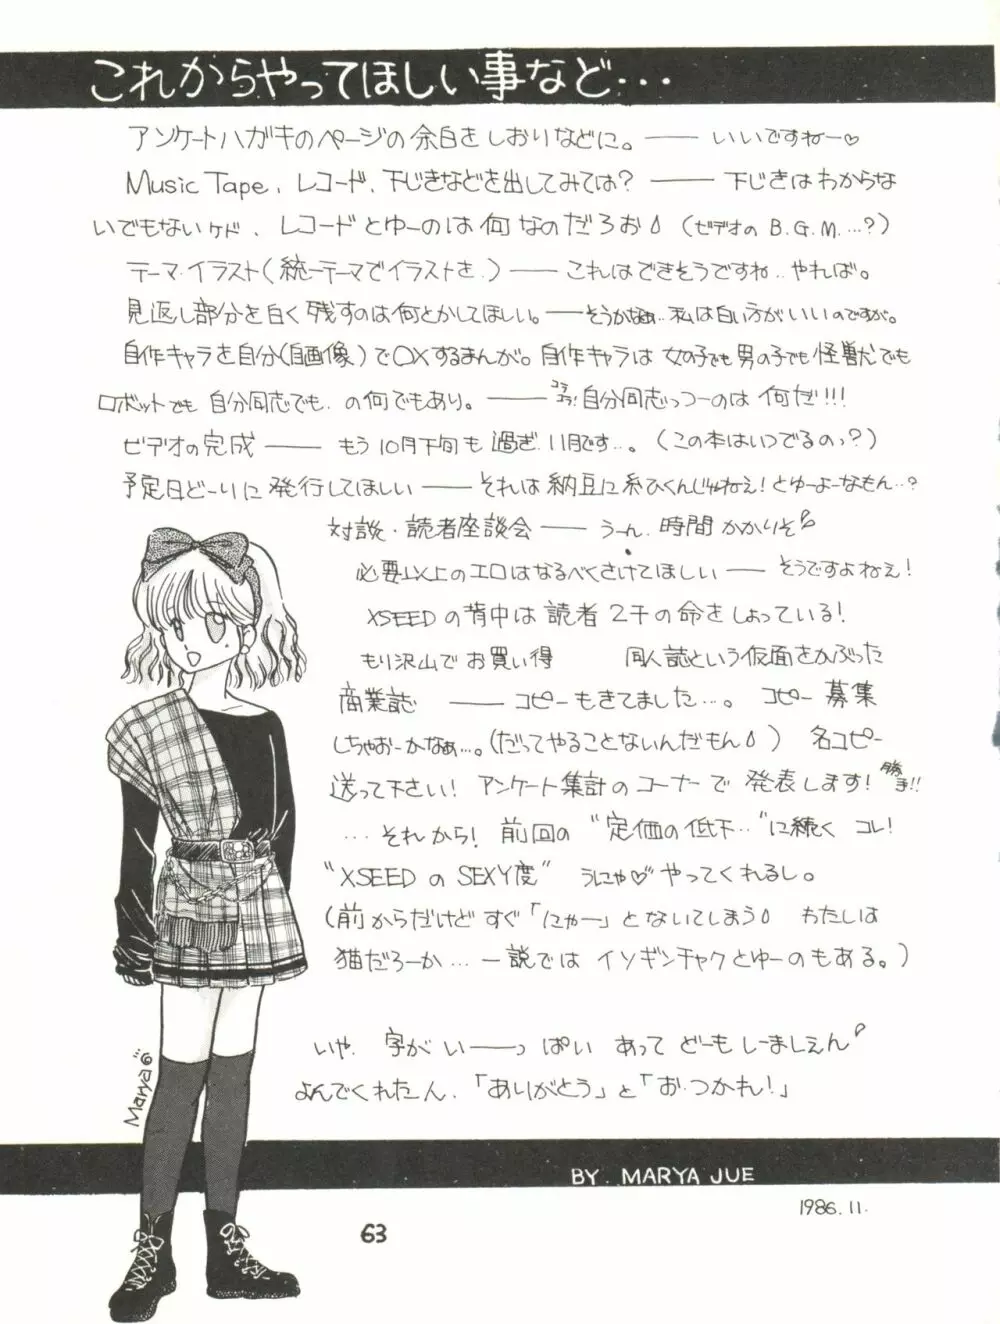 これからやってほしい事など・・・
アンケートハガキのページの余白をしおりなどに。―― いいですねー♡
Music Tape、レコード、下じきなどを出してみては? ―― 下じきはわからな
いでもないケド、レコードとゆーのは何なのだろお (ビデオの B.G.M.…?)
テーマ・イラスト(統一テーマでイラストを.) ―― これはできそうですね‥やれば。
見返し部分を白く残すのは何とかしてほしい。――そうかなぁ‥私は白い方がいいのですが。
自作キャラを自分(自画像)で〇×するまんが。自作キャラは女の子でも男の子でも怪獣でも
ロボットでも自分同志でも、の何でもあり。―― コラコラ!自分同志っつーのは何だ!!!
ビデオの完成 ―― もう10月下旬も過ぎ、11月です…。(この本はいつでるのっ?)
予定日どーりに発行してほしい ―― それは納豆に糸ひくんじゃねえ!とゆーよーなもん‥?
対談・読者座談会 ―― うーん、時間かかりそ
必要以上のエロはなるべくさけてほしい ―― そうですよねぇ!
XSEEDの背中は読者2千の命をしょっている!
もり沢山でお買い得 同人誌という仮面をかぶった
商業誌 ―― コピーもきてました…。 コピー募集
しちゃおーかなぁ…。(だってやることないんだもん) 名コピー
送って下さい! アンケート集計のコーナーで発表します! 勝手!!
…それから! 前回の"定価の低下…"に続くコレ!
"XSEEDのSEXY度" うにゃ♡やってくれるし。
(前からだけどすぐ「にゃー」とないてしまう わたしは
猫だろーか…一説ではイソギンチャクとゆーのもある。)
いや、字がい――っぱいあってどーもしーましぇん
よんでくれたん、「ありがとう」と「お・つかれ!」
Marya
BY. MARYA JUE
1986.11.
63